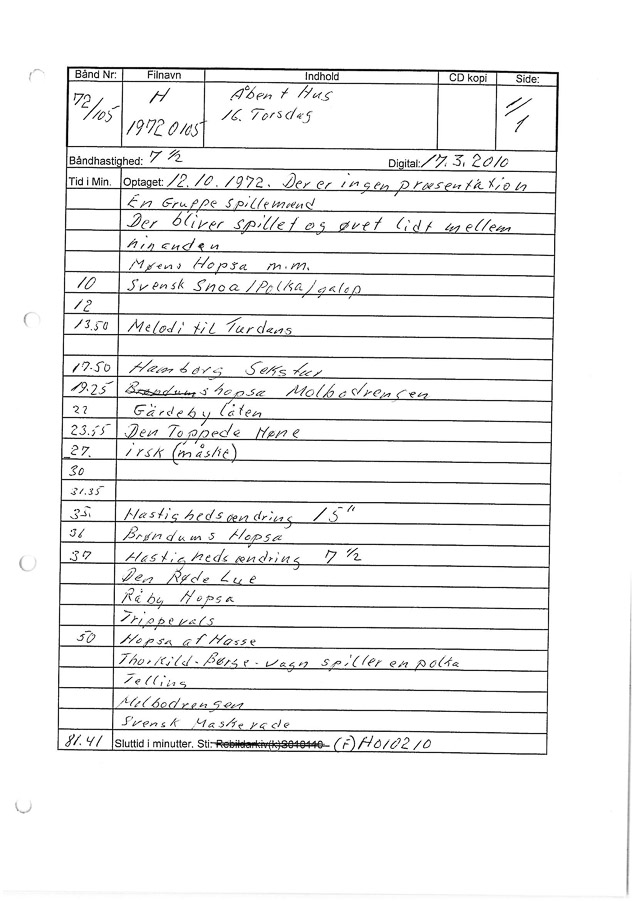 Bånd Nr: Filnavn Indhold CD kopi Side:
72/105 H Åbent Hus 1/1
19720105 16. Torsdag
Båndhastighed: 7 1/2 Digital: 17.3.2010
Tid i Min. Optaget: 12.10.1972. Der er ingen præsentation
En Gruppe spillemænd
Der bliver spillet og øvet lidt mellem
hinanden
Møens Hopsa m.m.
10 Svensk Snoa/Polka/galop
12
13.50 Melodi til Turdans
17.50 Hamborg Sekstur
19.25 Brøndumshopsa Molbodrengen
22 Gärdeby låten
23.55 Den Toppede Høne
27. irsk (måske)
30
31.35
35. Hastighedsændring 15"
36 Brøndums Hopsa
37 Hastighedsændring 7 1/2
Den Røde Lue
Råby Hopsa
Trippevals
50 Hopsa af Hasse
Thorkild-Børge-vagn spiller en polka
Telling
Molbodrengen
Svensk Maskerade
81.41 Sluttid i minutter. Sti: Rebildarkiv(k)S010110 (F)H010210